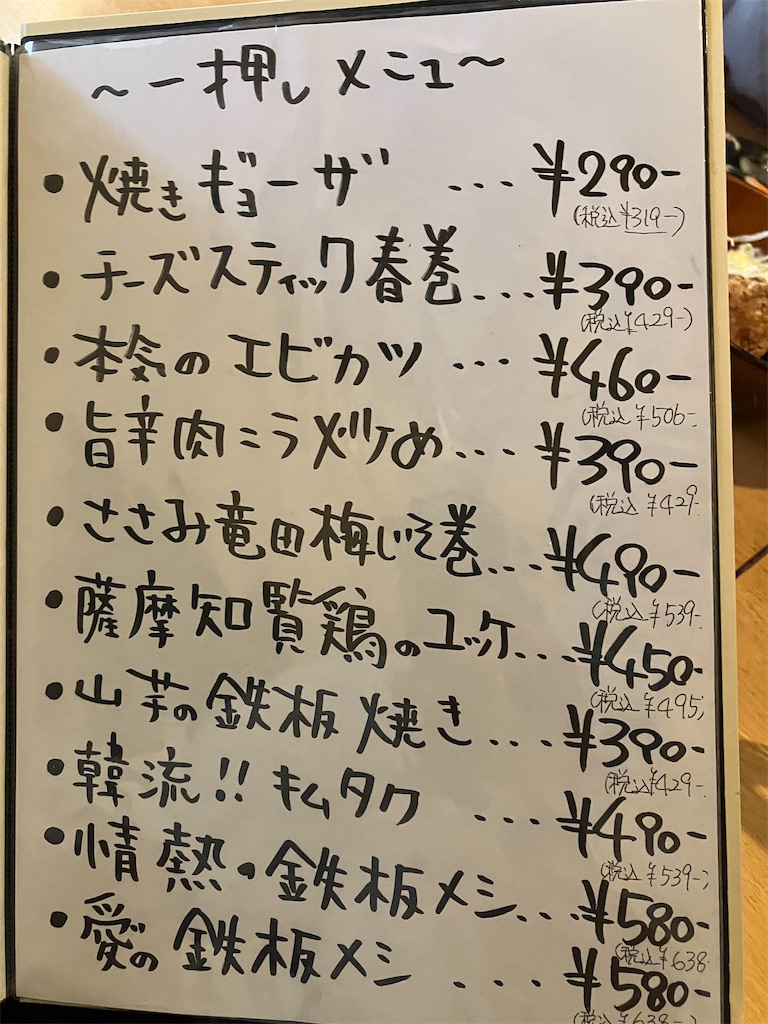 〜一押しメニュー〜
・焼きギョーザ ... ¥290-
(税込¥319-)
・チーズスティック春巻... ¥390-
(税込¥429-)
・本気のエビカツ ... ¥460-
(税込¥506-
・旨辛肉ニラ炒め... ¥390-
(税込¥429-
・ささみ竜田梅じそ巻... ¥490-
(税込¥539-
・薩摩知覧鶏のユッケ... ¥450-
(税込¥495)
・山芋の鉄板焼き... ¥390-
(税込¥429-
・韓流!! キムタク ... ¥490-
(税込¥539-)
・情熱の鉄板メシ... ¥580-
(税込¥638
・愛の鉄板メシ ... ¥580-
(税込¥638-)